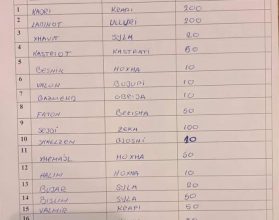 1 NAORI KRAPI 200
2 LADINOT ULLURI 200
3 XHAVIT SYLA 20
4 KASTRIOT KASTRATI 50
5 BESNIK HOXHA 10
6 VALON BUJUPI 10
7 OBRIJA 10
8 FATON BERISHA 50
9 ZEKA 100
10 GJOSHI 10
11 XHEMAJL HOXHA 50
12 HALIM HOXHA 10
13 BUJAR SYLA 20
14 BISLIM SYLA 50
15 VALMIR KRAPI 50
16